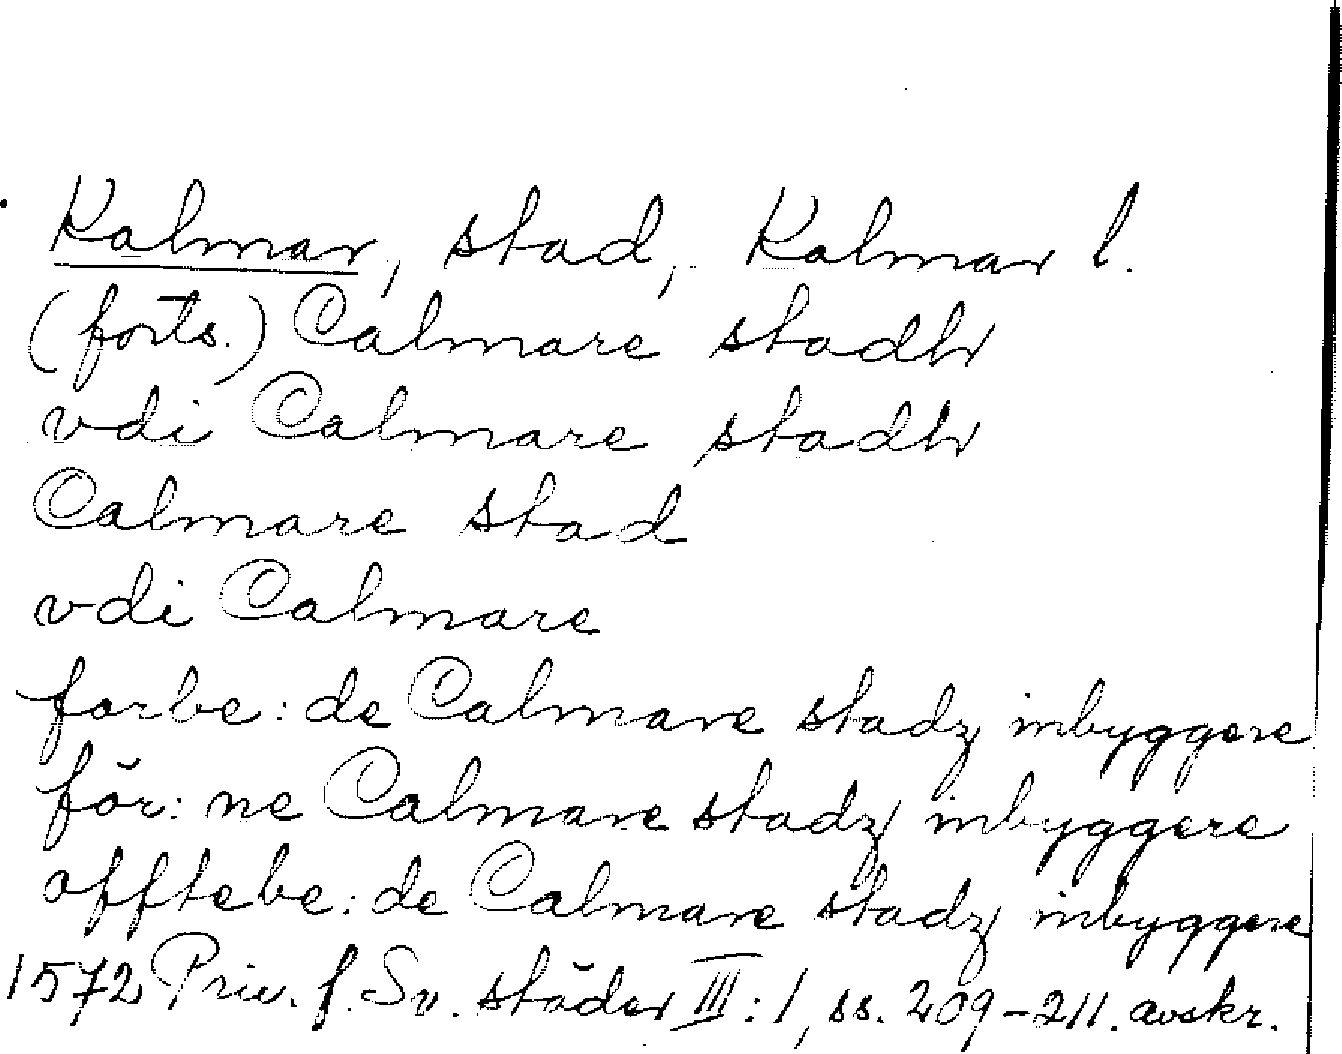 Kalmar, stad, Kalmar l.
(forts.) Calmare stadh
vdi Calmare stadh
Calmare stad
vdi Calmare
forbe:de Calmare stadz inbyggere
för:ne Calmare stadz inbyggere
offtebe:de Calmare stadz inbyggere
1572 Priv. f. Sv. städer III:1, ss. 209-211. avskr.